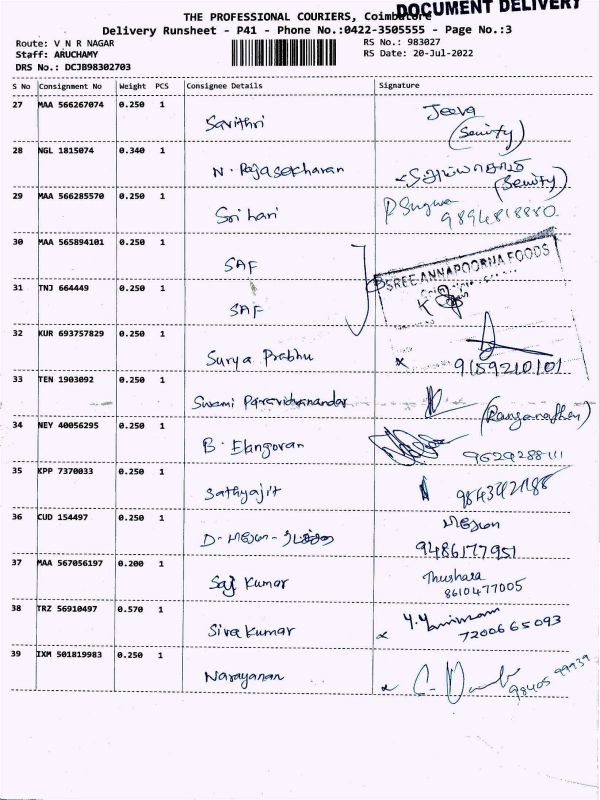 DOCUMENT DELIVERY
THE PROFESSIONAL COURIERS, Coimbatore
Delivery Runsheet - P41 - Phone No.:0422-3505555 - Page No.:3
Route: V N R NAGAR RS No.: 983027
Staff: ARUCHAMY RS Date: 20-Jul-2022
DRS No.: DCJB98302703
S No Consignment No Weight PCS Consignee Details Signature
27 MAA 566267074 0.250 1 Savithri Jeeva
28 NGL 1815074 0.340 1 N. Rajasekharan
29 MAA 566285570 0.250 1 Sri hari
9894818880
30 MAA 565894101 0.250 1 SAF
SREE ANNAPOORNA FOODS
31 TNJ 664449 0.250 1 SAF
32 KUR 693757829 0.250 1 Surya Prabhu
x 9159210101
33 TEN 1903092 0.250 1 Swami (Ranganathan)
34 NEY 40056295 0.250 1 B. Elangovan
35 KPP 7370033 0.250 1 Sathyajit
36 CUD 154497 0.250 1
9486177951
37 MAA 567056197 0.200 1 Saj Kumar Thushara
8610477005
38 TRZ 56910497 0.570 1 Siva Kumar
x 7200665093
39 IXM 501819983 0.250 1 Narayanan
x 98405 99939